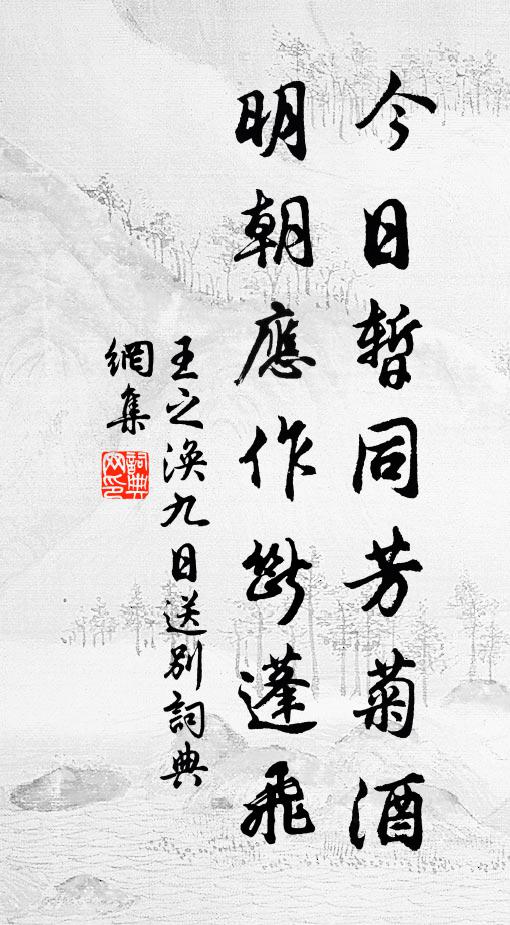 今日暫同芳菊酒
明朝應作斷蓬飛
王之渙九日送別詞典
網集
詞典網印